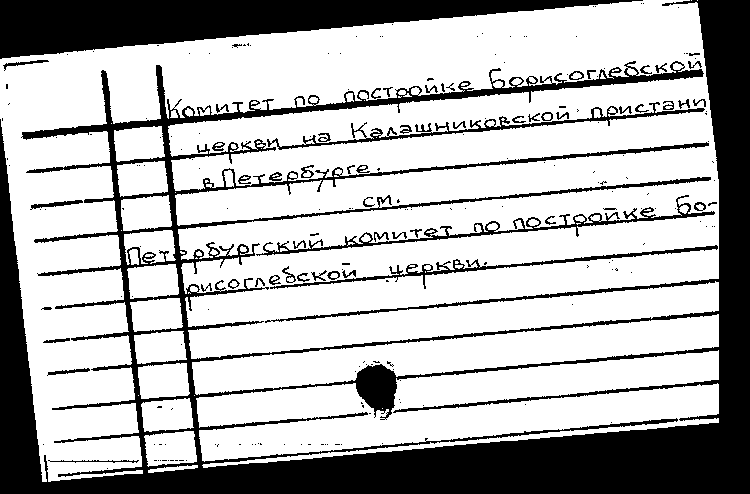 Комитет по постройке Борисоглебской
церкви на Калашниковской пристани
в Петербурге.
см.
Петербургский комитет по постройке Бо-
рисоглебской церкви.